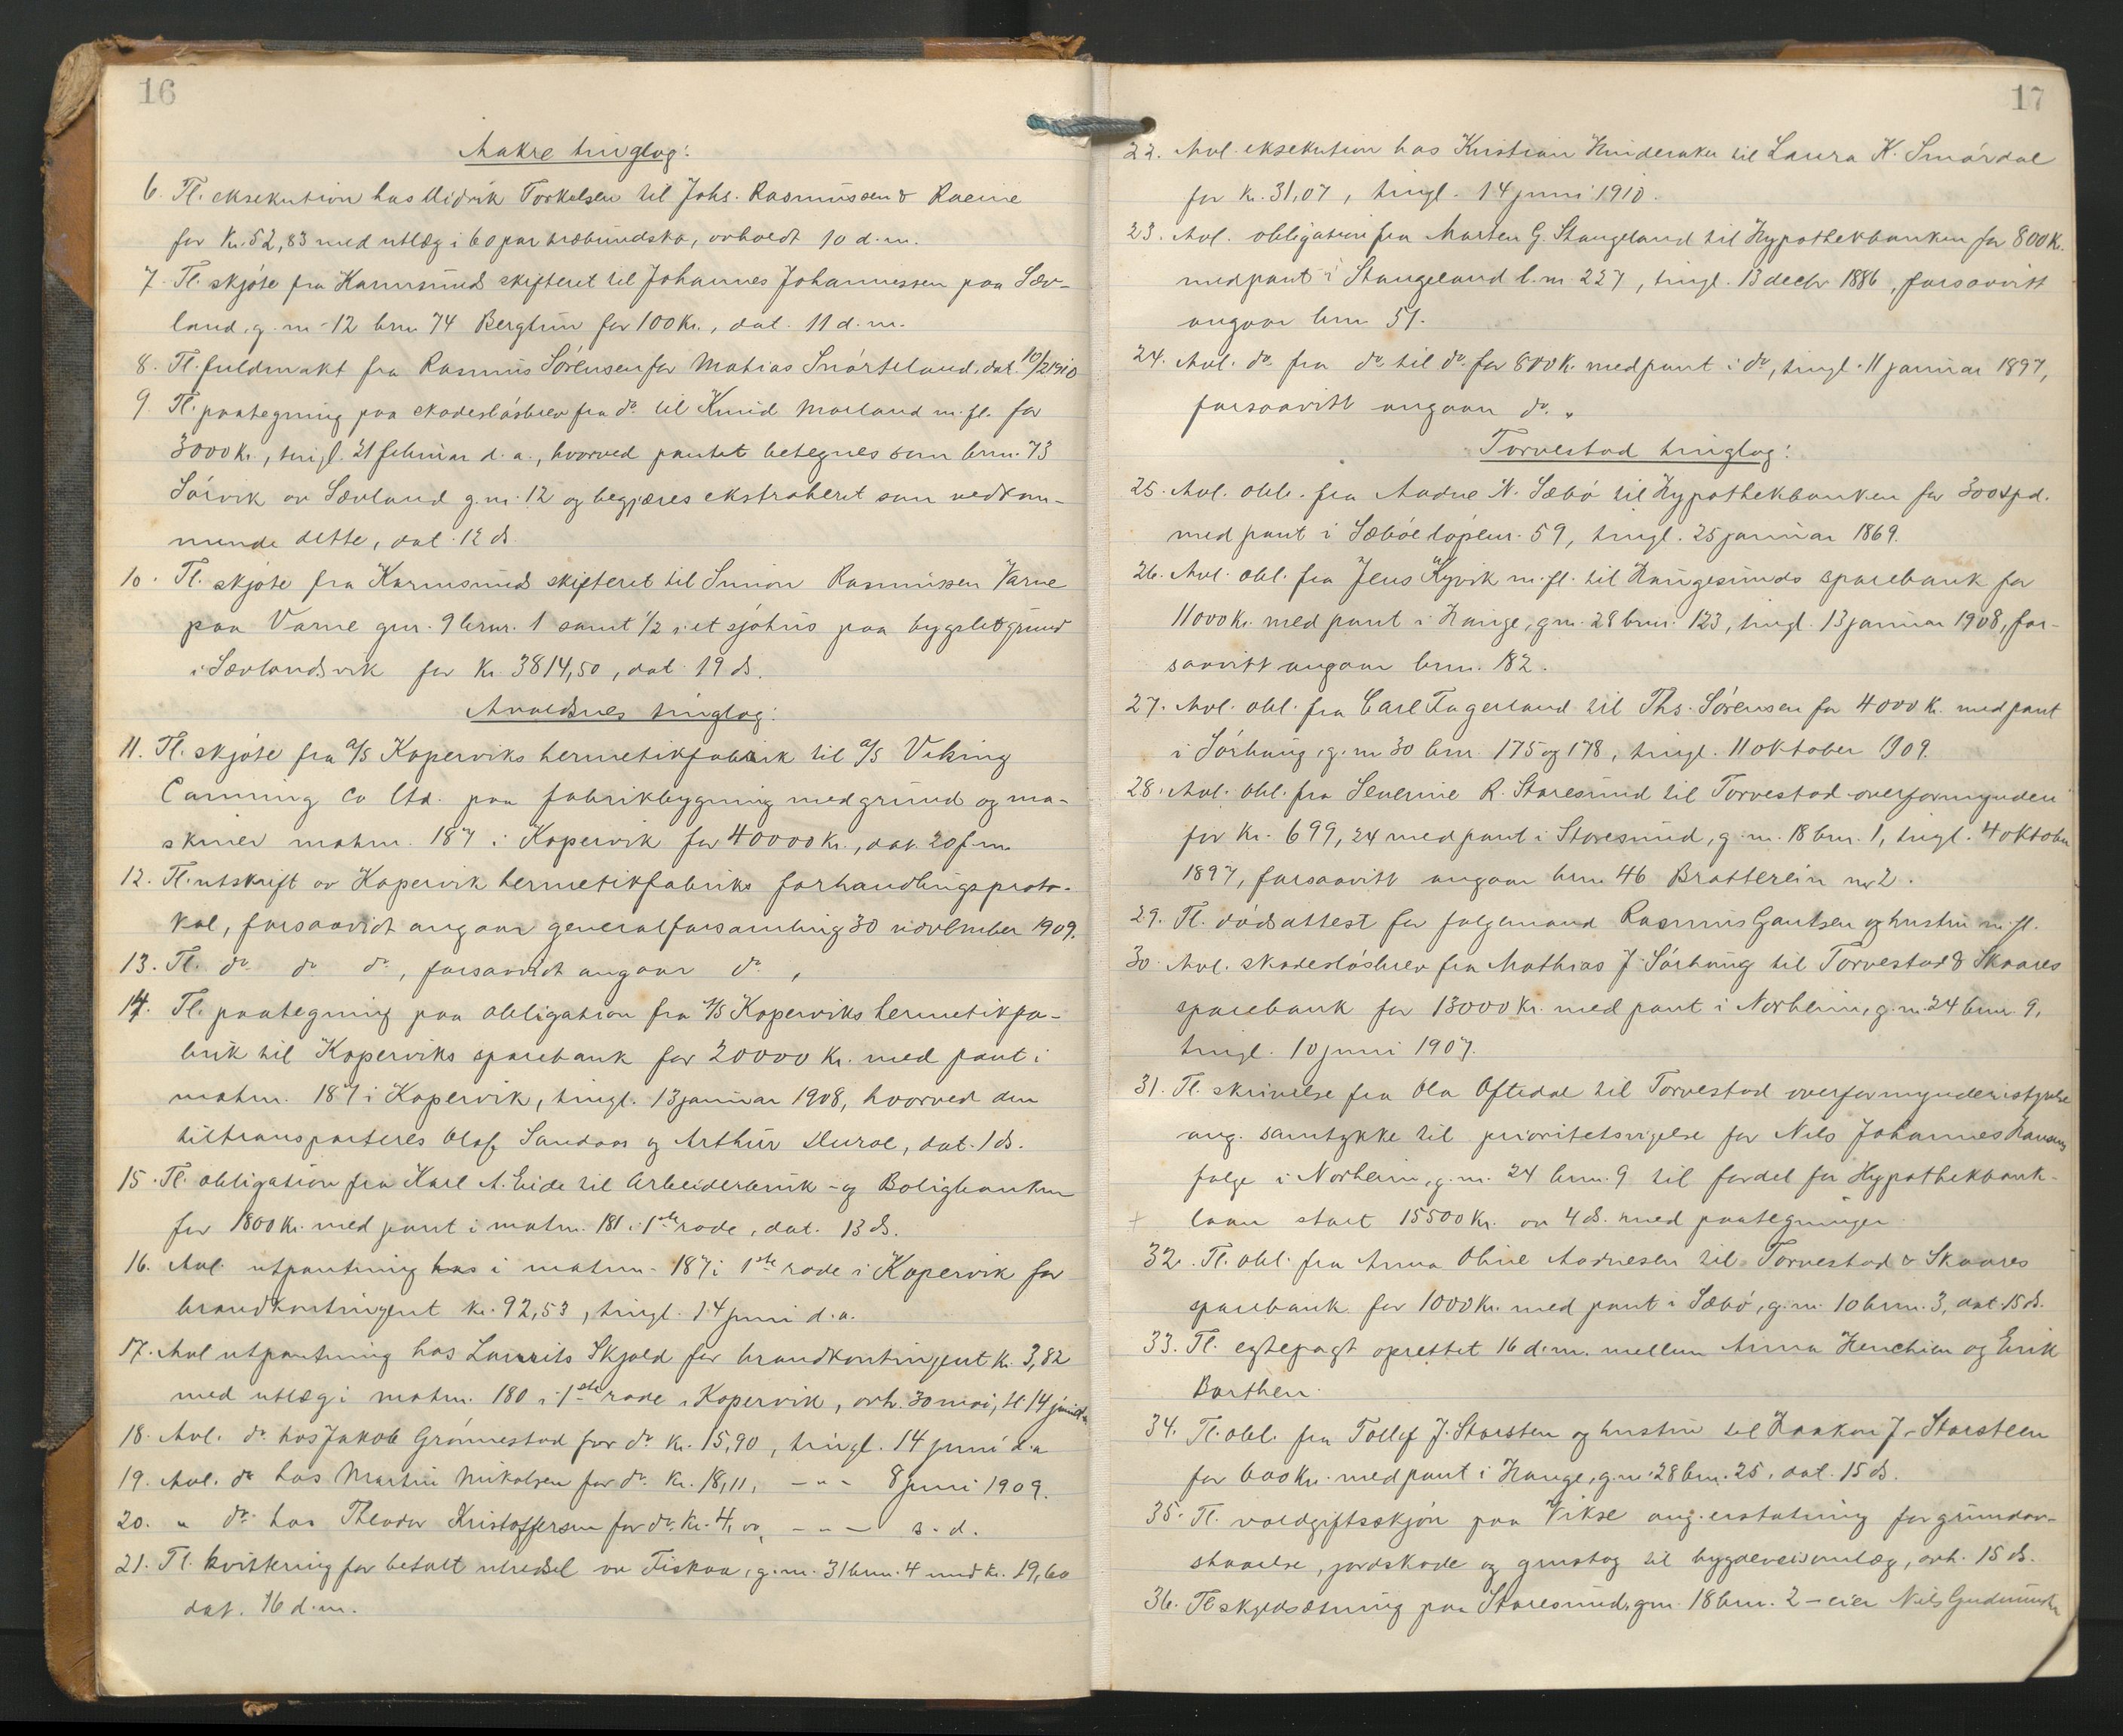 16
Aakre tinglag:
6. Tl. eksekution hos Didrik Torkelsen til Johs. Rasmussen & Racine
for Kr. 52,83 med utlæg i 60 par træbundsko, avholdt 10 d.m.
7. Tl. skjøte fra Karmsund skifteret til Johannes Johannessen paa Sæv-
land, g.m. 12 brn. 74 Bergtun for 100 Kr., dat. 11 d.m.
8. Tl. fuldmakt fra Rasmus Sørensen for Matias Snørteland, dat. 10/2 1910
9. Tl. paategning paa skadesløsbrev fra do. til Knud Marland m.fl. for
3000 Kr., tingl. 21 februar d.a., hvorved pantet betegnes som brn. 73
Sørvik av Sævland g.m. 12 og begjæres ekstraheret som vedkom-
mende dette, dat. 12 ds.
10. Tl. skjøte fra Karmsund skifteret til Simon Rasmussen Varne
paa Varne gnr. 9 brnr. 1 samt 1/2 i et sjøhus paa bygslet grund
i Sævlandsvik for Kr. 3814,50, dat. 19 ds.
Avaldsnes tinglag:
11. Tl. skjøte fra a/s Koperviks hermetikfabrik til a/s Viking
Canning Co Ltd. paa fabrikbygning med grund og ma-
skiner matnr. 187 i Kopervik for 40000 Kr., dat. 20 f.m.
12. Tl. utskrift av Kopervik hermetikfabriks forhandlingsproto-
kol, forsaavidt angaar generalforsamling 30 november 1909.
13. Tl. do do do, forsaavidt angaar do.,
14. Tl. paategning paa obligation fra a/s Koperviks hermetikfa-
brik til Koperviks sparebank for 20000 Kr. med pant i
matnr. 187 i Kopervik, tingl. 13 januar 1908, hvorved den
tiltransporteres Olaf Sandaas og Arthur, dat. 1 ds.
15. Tl. obligation fra Karl A. Eide til Arbeiderbruk- og Boligbanken
for 1800 Kr. med pant i matnr. 181 i 1ste rode, dat. 13 ds.
16. Avl. utpantning hos i matnr. 187 i 1ste rode i Kopervik for
brandkontingent kr. 92,53, tingl. 14 juni d.a.
17. Avl utpantning hos Laurits Skjold for brandkontingent Kr. 3,82
med utlæg i matnr. 180 i 1ste rode i Kopervik, avh. 30 mai, tl 14 juni
18. Avl. do hos Jakob Grønnestad for do Kr. 15,90, tingl. 14 juni d.a
19. Avl. do hos Martin Nikolsen for do. Kr. 18,11, - " - 8 juni 1909.
20. " do. hos Theodor Kristoffersen for do. Kr. 4,00, - " - s.d.
21. Tl. kvittering for betalt utredsel av Fiskaa, g.m. 31 brn. 4 med kr. 19,60
dat. 16 d.m.
17
22. Avl. eksekution hos Kristian Hinderaker til Laura K. Smørdal
for Kr. 31,07, tingl. 14 juni 1910.
23. Avl. obligation fra Marten G. Stangeland til Hypothekbanken for 800 K.
med pant i Stangeland l.n. 227, tingl. 13 decbr 1886, forsaavitt
angaar brn 51.
24. Avl. do. fra do til do for 800 K. med pant i do, tingl. 11 januar 1897,
forsaavitt angaar do. "
Torvestad tinglag:
25. Avl. obl. fra Aadne N. Sæbø til Hypothekbanken for 300 spd.
med pant i Sæbø løpenr. 59, tingl. 25 januar 1869.
26. Avl. obl. fra Jens Kyvik m.fl. til Haugesunds sparebank for
11000 Kr. med pant i Hauge, gn. 28 brn. 123, tingl. 13 januar 1908, for-
saavitt angaar brn. 182.
27. Avl. obl. fra Carl Fagerland til Ths. Sørensen for 4000 K. med pant
i Sørhaug, g.n 30 brn. 175 og 178, tingl. 11 oktober 1909.
28. Avl. obl. fra Severine R. Storesund til Torvestad overformynderi
for Kr. 699,24 med pant i Storesund, g.n. 18 brn. 1, tingl. 4 oktober
1897, forsaavitt angaar brn. 46 Bratterein nr 2.
29. Tl. dødsattest for folgemand Rasmus Gautsen og hustru m.fl.
30. Avl. skadesløsbrev fra Mathias J. Sørhaug til Torvestad & Skaares
sparebank for 13000 Kr. med pant i Norheim, g.n. 24 brn. 9,
tingl. 10 juni 1907.
31. Tl. skrivelse fra Ola Oftedal til Torvestad overformynderistyrelse
ang. samtykke til prioritetsvigelse for Nils Johannes
folge i Norheim, g.n. 24 brn. 9 til fordel for Hypothekbank-
+ laan stort 15500 Kr. av 4 ds. med paategninger.
32. Tl. obl. fra Anna Oline Aadnesen til Torvestad & Skaares
sparebank for 1000 Kr. med pant i Sæbø, g.n. 10 brn. 3, dat. 15 ds.
33. Tl. egtepagt oprettet 16 d.m. mellem Anna Henchien og Erik
Barthen.
34. Tl. obl. fra Tollef J. Storsten og hustru til Haakon J. Storsteen
for 600 Kr. med pant i Hauge, g.n. 28 brn. 25, dat. 15 ds.
35. Tl. voldgiftsskjøn paa Vikse ang. erstatning for grundav-
staaelse, jordskade og grustag til bygdeveisomlæg, avh. 15 ds.
36. Tl skyldsætning paa Storesund, gn. 18 brn. 2 - eier Nils Gudmundsen